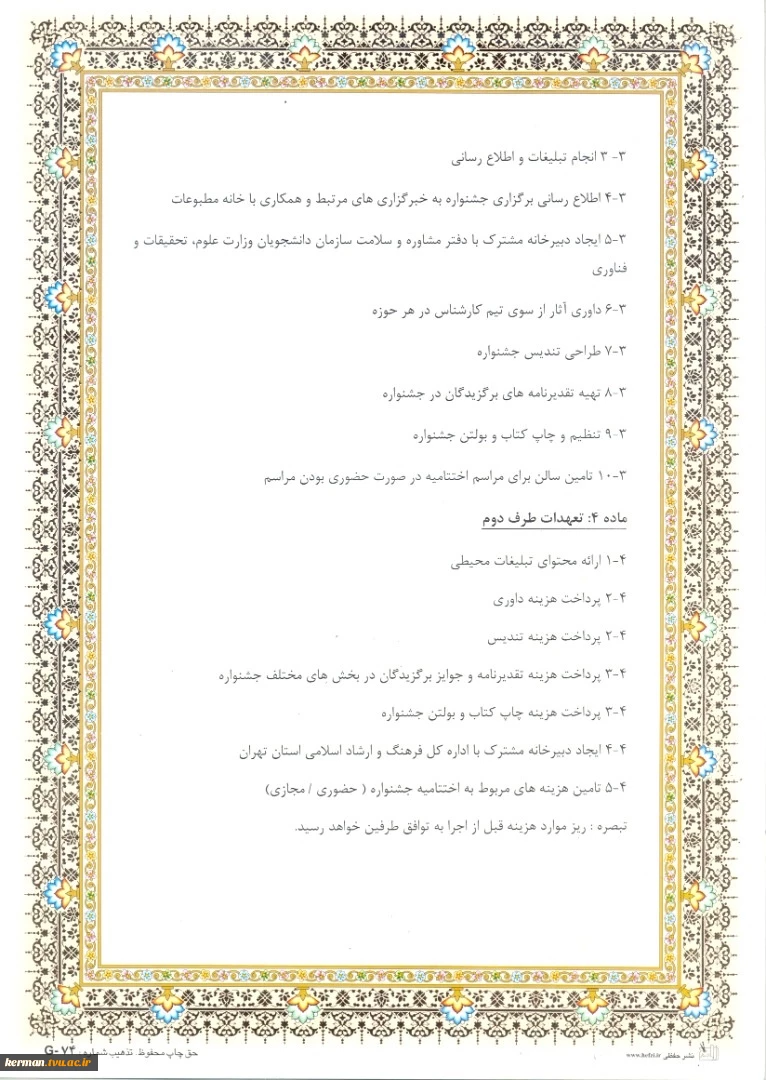 ۳- ۳ انجام تبلیغات و اطلاع رسانی
۴-۳ اطلاع رسانی برگزاری جشنواره به خبرگزاری های مرتبط و همکاری با خانه مطبوعات
۵-۳ ایجاد دبیرخانه مشترک با دفتر مشاوره و سلامت سازمان دانشجویان وزارت علوم، تحقیقات و
فناوری
۶-۳ داوری آثار از سوی تیم کارشناس در هر حوزه
۷-۳ طراحی تندیس جشنواره
۸-۳ تهیه تقدیرنامه های برگزیدگان در جشنواره
۹-۳ تنظیم و چاپ کتاب و بولتن جشنواره
۱۰-۳ تامین سالن برای مراسم اختتامیه در صورت حضوری بودن مراسم
ماده ۴: تعهدات طرف دوم
۱-۴ ارائه محتوای تبلیغات محیطی
۲-۴ پرداخت هزینه داوری
۲-۴ پرداخت هزینه تندیس
۳-۴ پرداخت هزینه تقدیرنامه و جوایز برگزیدگان در بخش های مختلف جشنواره
۳-۴ پرداخت هزینه چاپ کتاب و بولتن جشنواره
۴-۴ ایجاد دبیرخانه مشترک با اداره کل فرهنگ و ارشاد اسلامی استان تهران
۵-۴ تامین هزینه های مربوط به اختتامیه جشنواره ( حضوری / مجازی)
تبصره : ریز موارد هزینه قبل از اجرا به توافق طرفین خواهد رسید.
نشر حفظی www.hefzi.ir
حق چاپ محفوظ. تذهیب شماره: G-۷۴
kerman.tvu.ac.ir